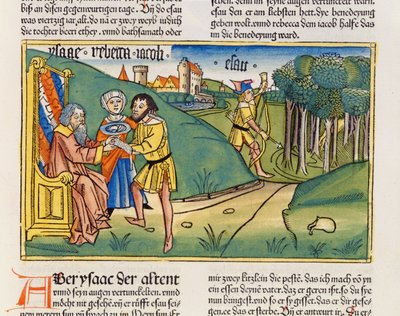 biß an disen gegenwurtigen tage. Do esau
was viertzig iar alt. do na er zwey weyb iudith
die tochter beeri ethey. vnnd bathsamath oder
esau den er am liebsten hett. dye benedeyung
geben wolt. vnnd rebecca dem iacob halfe das
im die benedeyung ward.
ysaac rebecca iacob
esau
Aber ysaac der altent
vnnd sein augen vertunckelten. vnnd
möcht nit gesehē. vn̄ er rüfft esau sei
mir zwey kitzlein die pestē. das ich mach võ yn
ein essen deynē vater. das er geren ißet. so du
nun bringest. vnd so er sy gisset. das er dir gesegen
ee das er sterbe. Er antwurt ir.